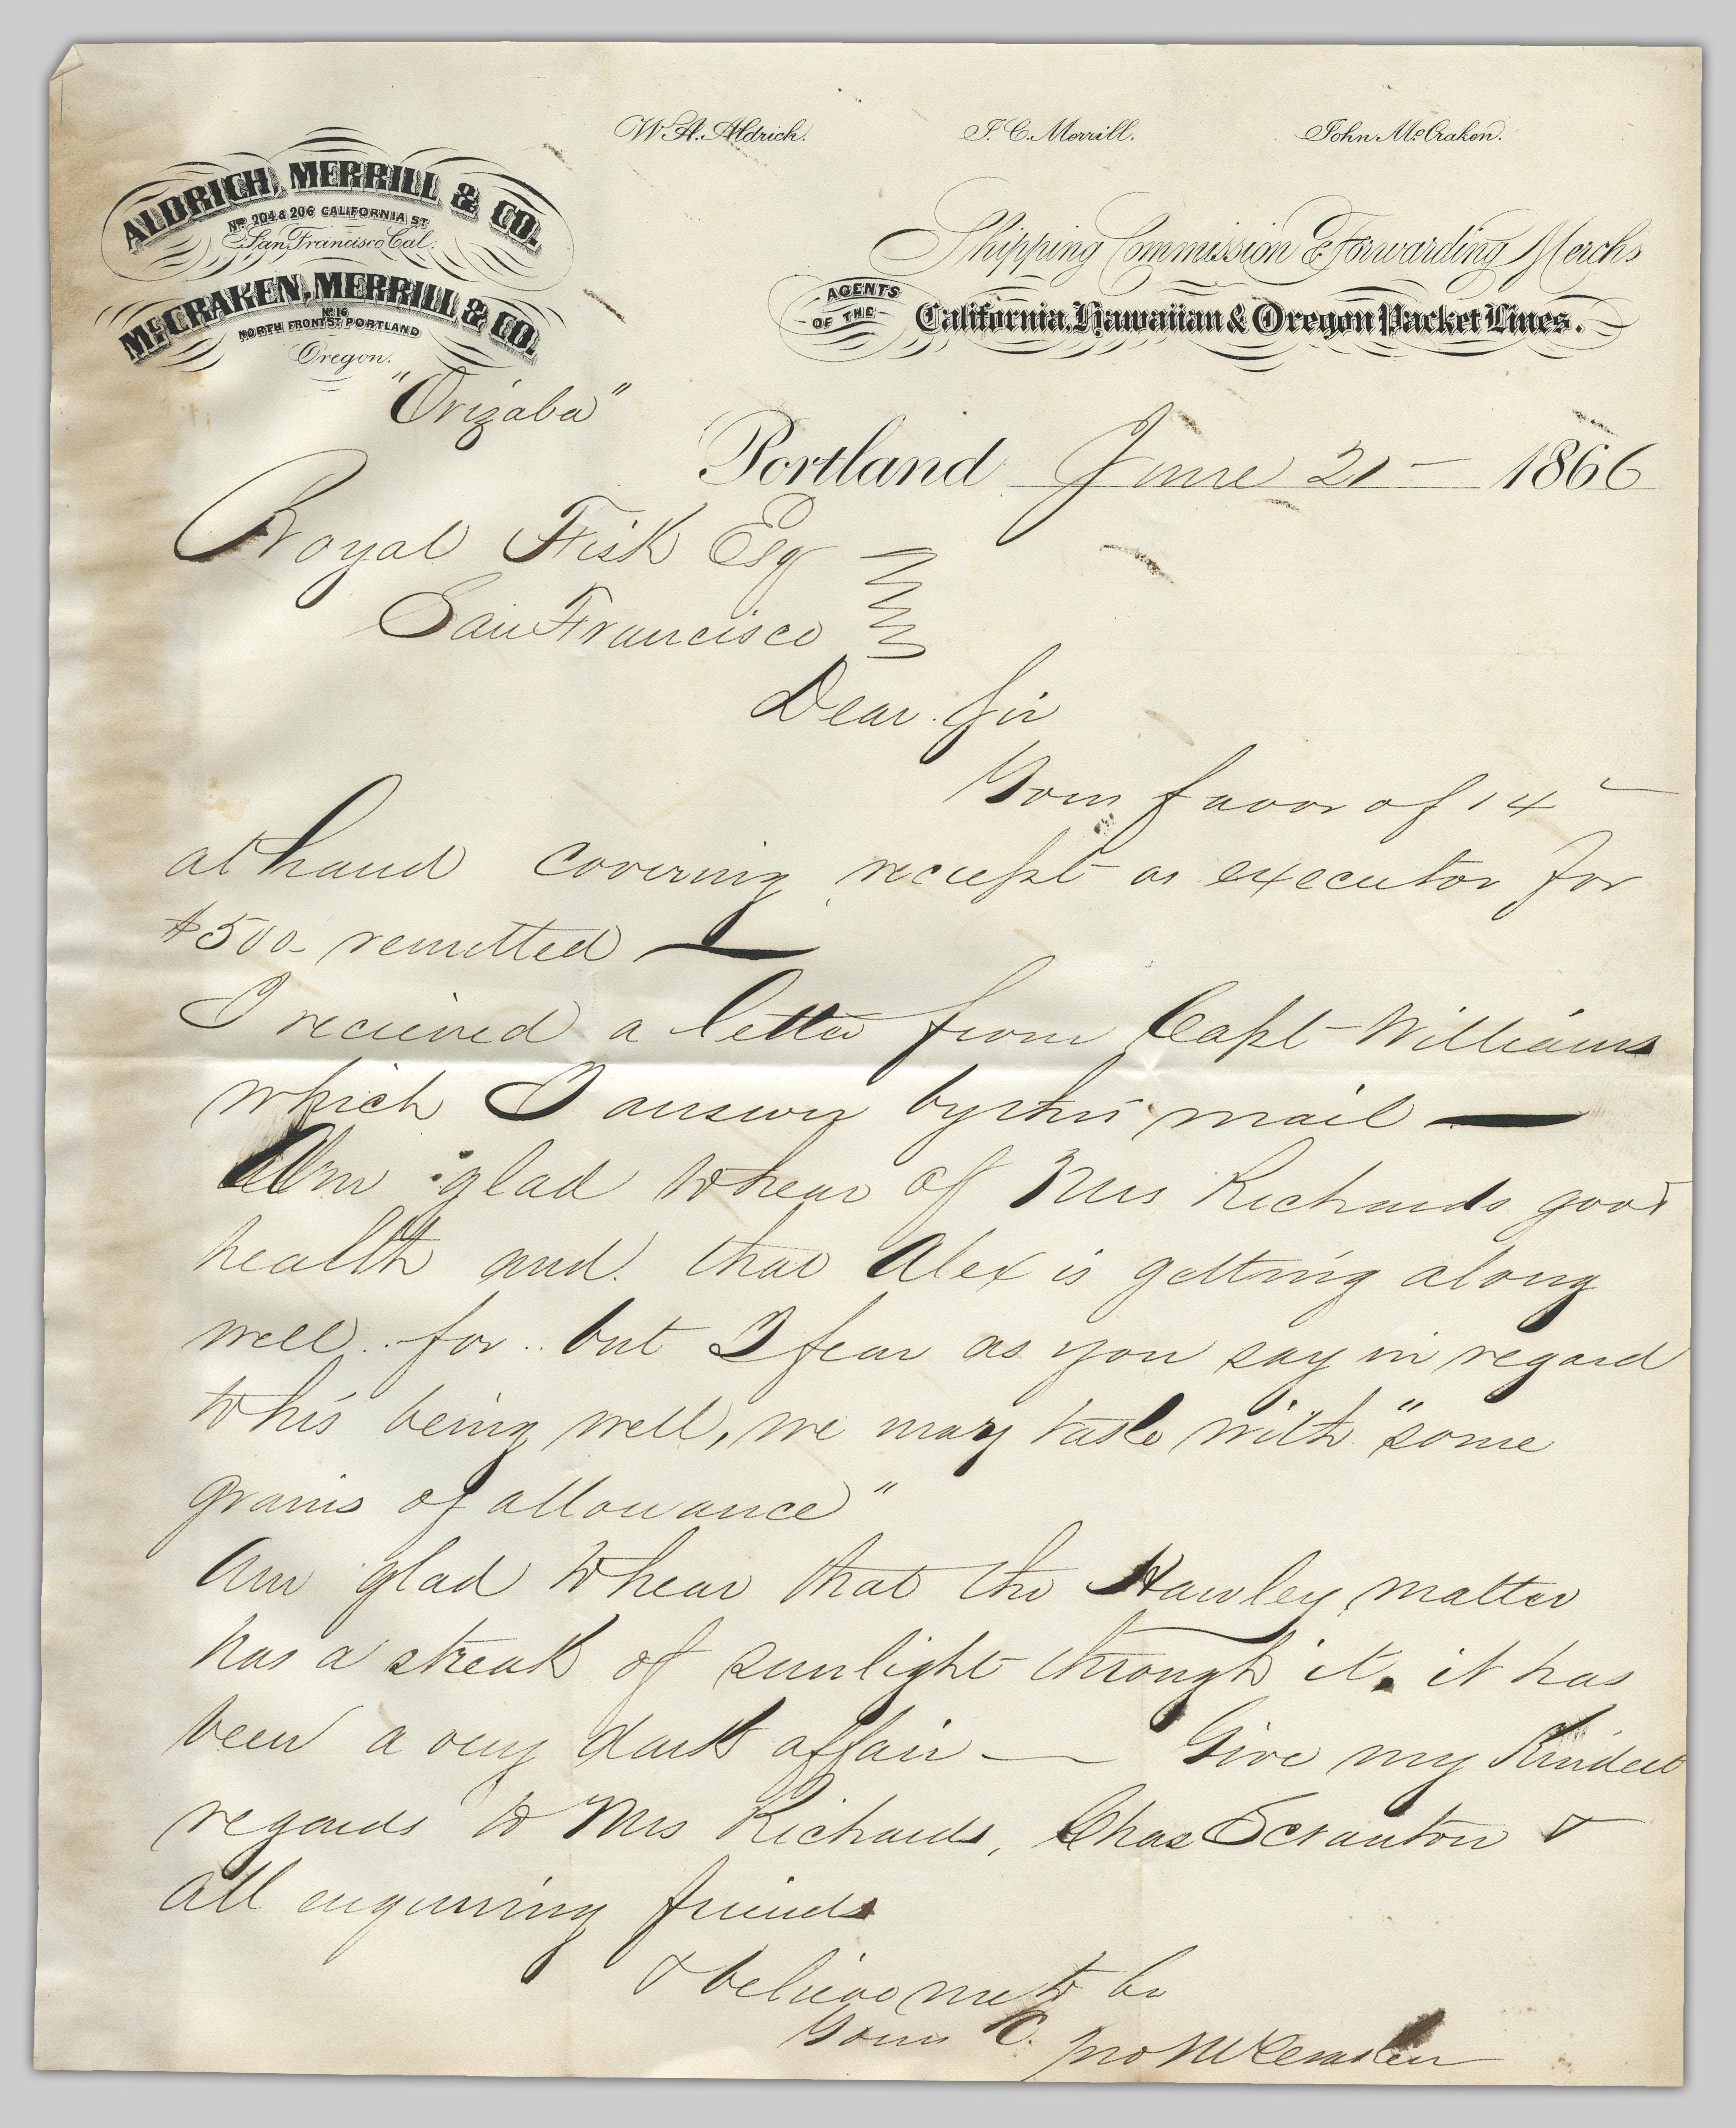 W. A. Aldrich. J. C. Merrill. John McCraken.
ALDRICH, MERRILL & CO.
Nos. 204 & 206 CALIFORNIA ST.
San Francisco Cal.
McCRAKEN, MERRILL & CO.
No. 16
NORTH FRONT ST. PORTLAND
Oregon.
Shipping Commission & Forwarding Merchs
AGENTS
OF THE
California, Hawaiian & Oregon Packet Lines.
"Orizaba"
Portland June 21 - 1866
Royal Fisk Esq
San Francisco
Dear Sir
Your favor of 14
at hand covering reciept as executor for
$500- remitted —
I recieved a letter from Capt Williams
which I answer by this mail —
Am glad to hear of Mrs Richards good
health and that Alex is getting along
well .. for .. but I fear as you say in regard
to his being well, we may take with "some
grains of allowance"
Am glad to hear that the Hawley matter
has a streak of sunlight through it. it has
been a very dark affair — Give my kindest
regards to Mrs Richards, Chas Scranton &
all enquiring friends
& believe me to be
Yours &c. Jno McCraken